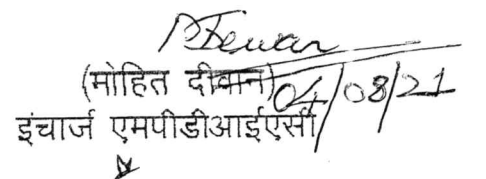 (मोहित दीवान)
04/08/21
इंचार्ज एमपीडीआईएसी